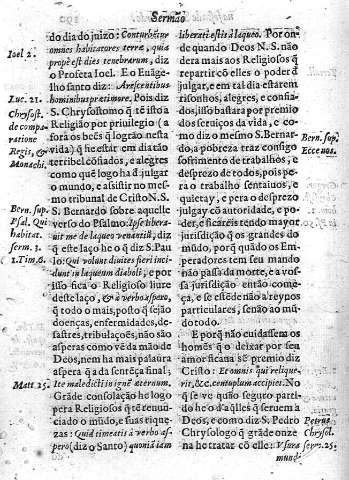 Sermão
do dia do juizo: Conturbētur
omnes habitatores terræ, quia
propè est dies tenebrarum, diz
o Profeta Ioel. E o Euāge-
lho santo diz: Arescentibus
hominibus præ timore. Pois diz
S. Chrysostomo q̃ tē ira a
Religião por priuilegio (a
fora os bēs q̃ lográo nesta
vida) q̃ he estar em dia tão
terribel cōfiados, e alegres
como que logo hā d julgar
o mundo, e assistir no mes-
mo tribunal de Cristo N.S.
S. Bernardo sobre aquelle
verso do Psalmo: Ipse liberа-
uit me de laqueo venantiū, diz
q̃ este laço he o q̃ diz S. Pau
lo: Qui volunt diuites fieri inci
dunt in laqueum diaboli, e por
isso fica o Religioso liure
deste laço, & à verbo aspero,
q̃ todo o mais, posto q̃ sejão
doenças, enfermidades, de-
sastres, tribulações, não são
asperas como vē da mão de
Deos, nem ha mais palaura
aspera q̃ a da sentēça final;
Ite maledicti in ignē æternum.
Grāde consolação he logo
pera Religiosos q̃ tē renun-
ciado o mūdo, e suas rique-
zas: Quid timeatis à verbo as-
pero (diz o Santo) quoniā iam
Ioel 2.
Luc. 21.
Chrysost.
de compa
ratione
Regis, &
Monachi.
Bern. sup.
Psal. Qui
habitat.
serm. 3.
1. Tim. 6.
Matt. 25.
liberati estis à laqueo. Por on-
de quando Deos N. S. não
dera mais aos Religiosos q̃
repartir cō elles o poder d
julgar, e em tal dia estarem
risonhos, alegres, e confia-
dos, isso bastara por premio
dos seruiços da vida, e co-
mo diz o mesmo S. Bernar-
do, a pobreza traz consigo
sofrimento de trabalhos, e
desprezo de todos, pois pe-
ra o trabalho sentaiuos, e
quietay, e pera o desprezo
julgay cō autoridade, e po-
der, e ficareis tendo mayor
jurisdição q̃ os grandes do
mūdo, porq̃ quādo os Em-
peradores tem seu mando
não passa da morte, e a vos-
sa jurisdição entāo come-
ça, e se estēde nāo a reynos
particulares, senāo ao mū-
do todo.
E porq̃ nāo cuidassem os
homēs q̃ o deixar por seu
amor ficaua sē premio diz
Cristo: Et omnis qui relique-
rit, &c. centuplum accipiet. No
q̃ se vē quāo seguro parti-
do he o d'a q̃lles q̃ seruem a
Deos, e como diz S. Pedro
Chrysologo q̃ grāde onze
na he tratar cō elle: Vsura
mund
Bern. sup.
Ecce nos.
Petrus
Chrysol.
serm. 25.